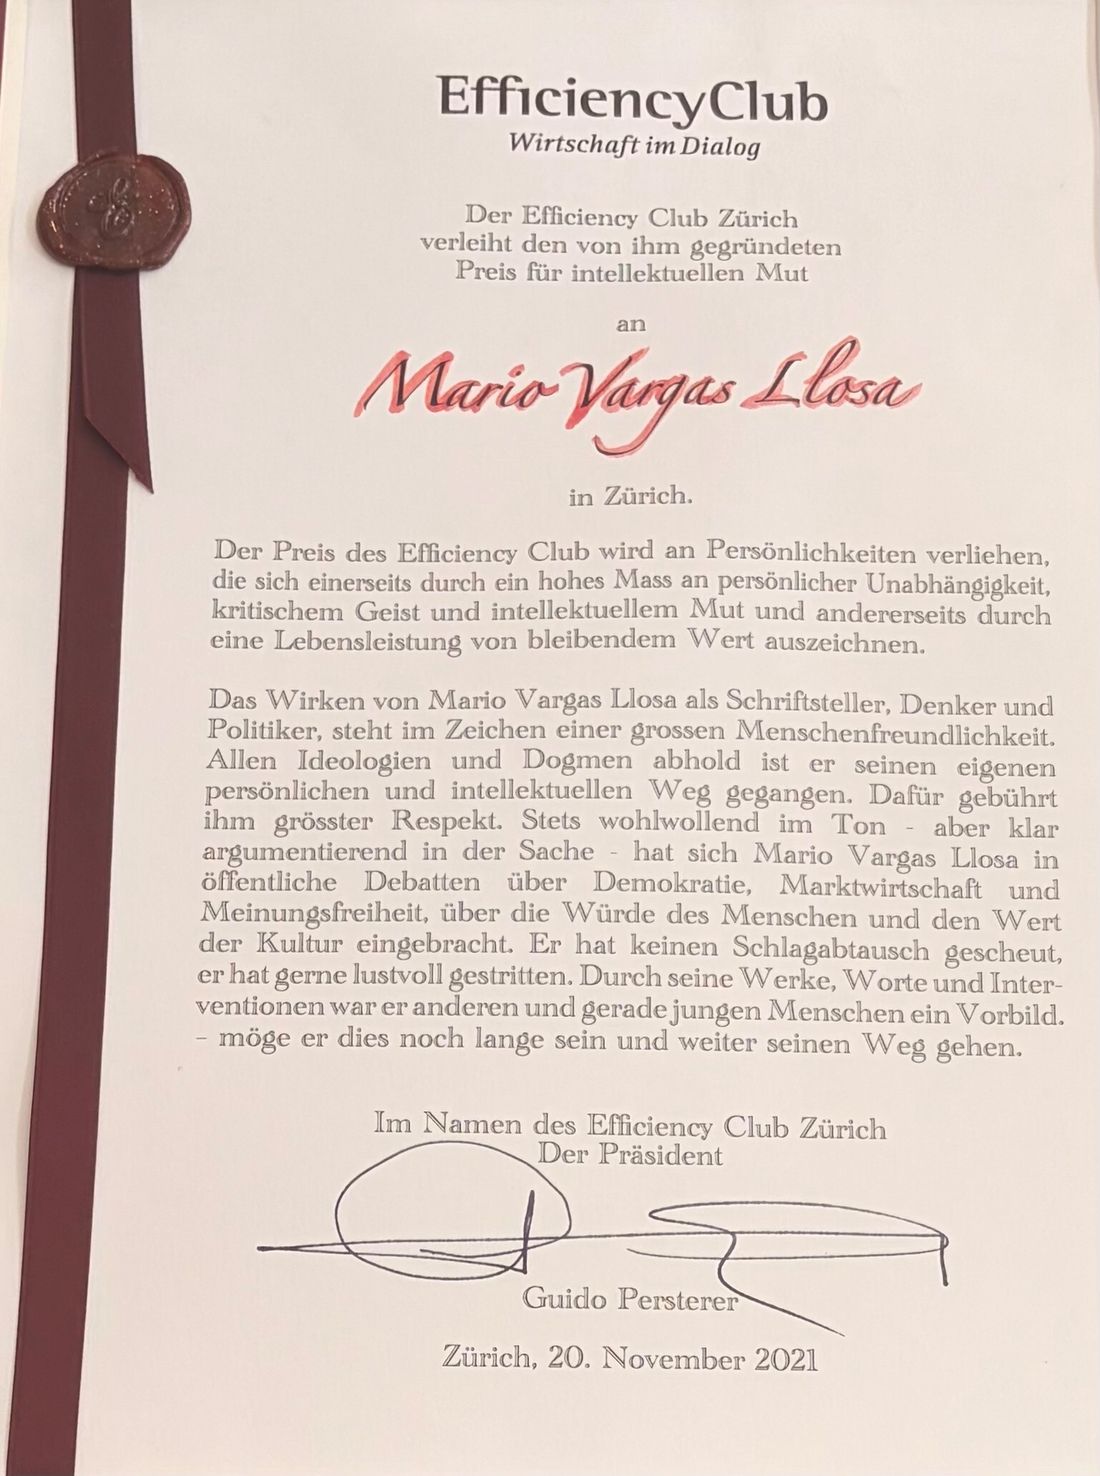 EfficiencyClub
Wirtschaft im Dialog
Der Efficiency Club Zürich
verleiht den von ihm gegründeten
Preis für intellektuellen Mut
an
Mario Vargas Llosa
in Zürich.
Der Preis des Efficiency Club wird an Persönlichkeiten verliehen,
die sich einerseits durch ein hohes Mass an persönlicher Unabhängigkeit,
kritischem Geist und intellektuellem Mut und andererseits durch
eine Lebensleistung von bleibendem Wert auszeichnen.
Das Wirken von Mario Vargas Llosa als Schriftsteller, Denker und
Politiker, steht im Zeichen einer grossen Menschenfreundlichkeit.
Allen Ideologien und Dogmen abhold ist er seinen eigenen
persönlichen und intellektuellen Weg gegangen. Dafür gebührt
ihm grösster Respekt. Stets wohlwollend im Ton - aber klar
argumentierend in der Sache - hat sich Mario Vargas Llosa in
öffentliche Debatten über Demokratie, Marktwirtschaft und
Meinungsfreiheit, über die Würde des Menschen und den Wert
der Kultur eingebracht. Er hat keinen Schlagabtausch gescheut,
er hat gerne lustvoll gestritten. Durch seine Werke, Worte und Inter-
ventionen war er anderen und gerade jungen Menschen ein Vorbild.
- möge er dies noch lange sein und weiter seinen Weg gehen.
Im Namen des Efficiency Club Zürich
Der Präsident
Guido Persterer
Zürich, 20. November 2021